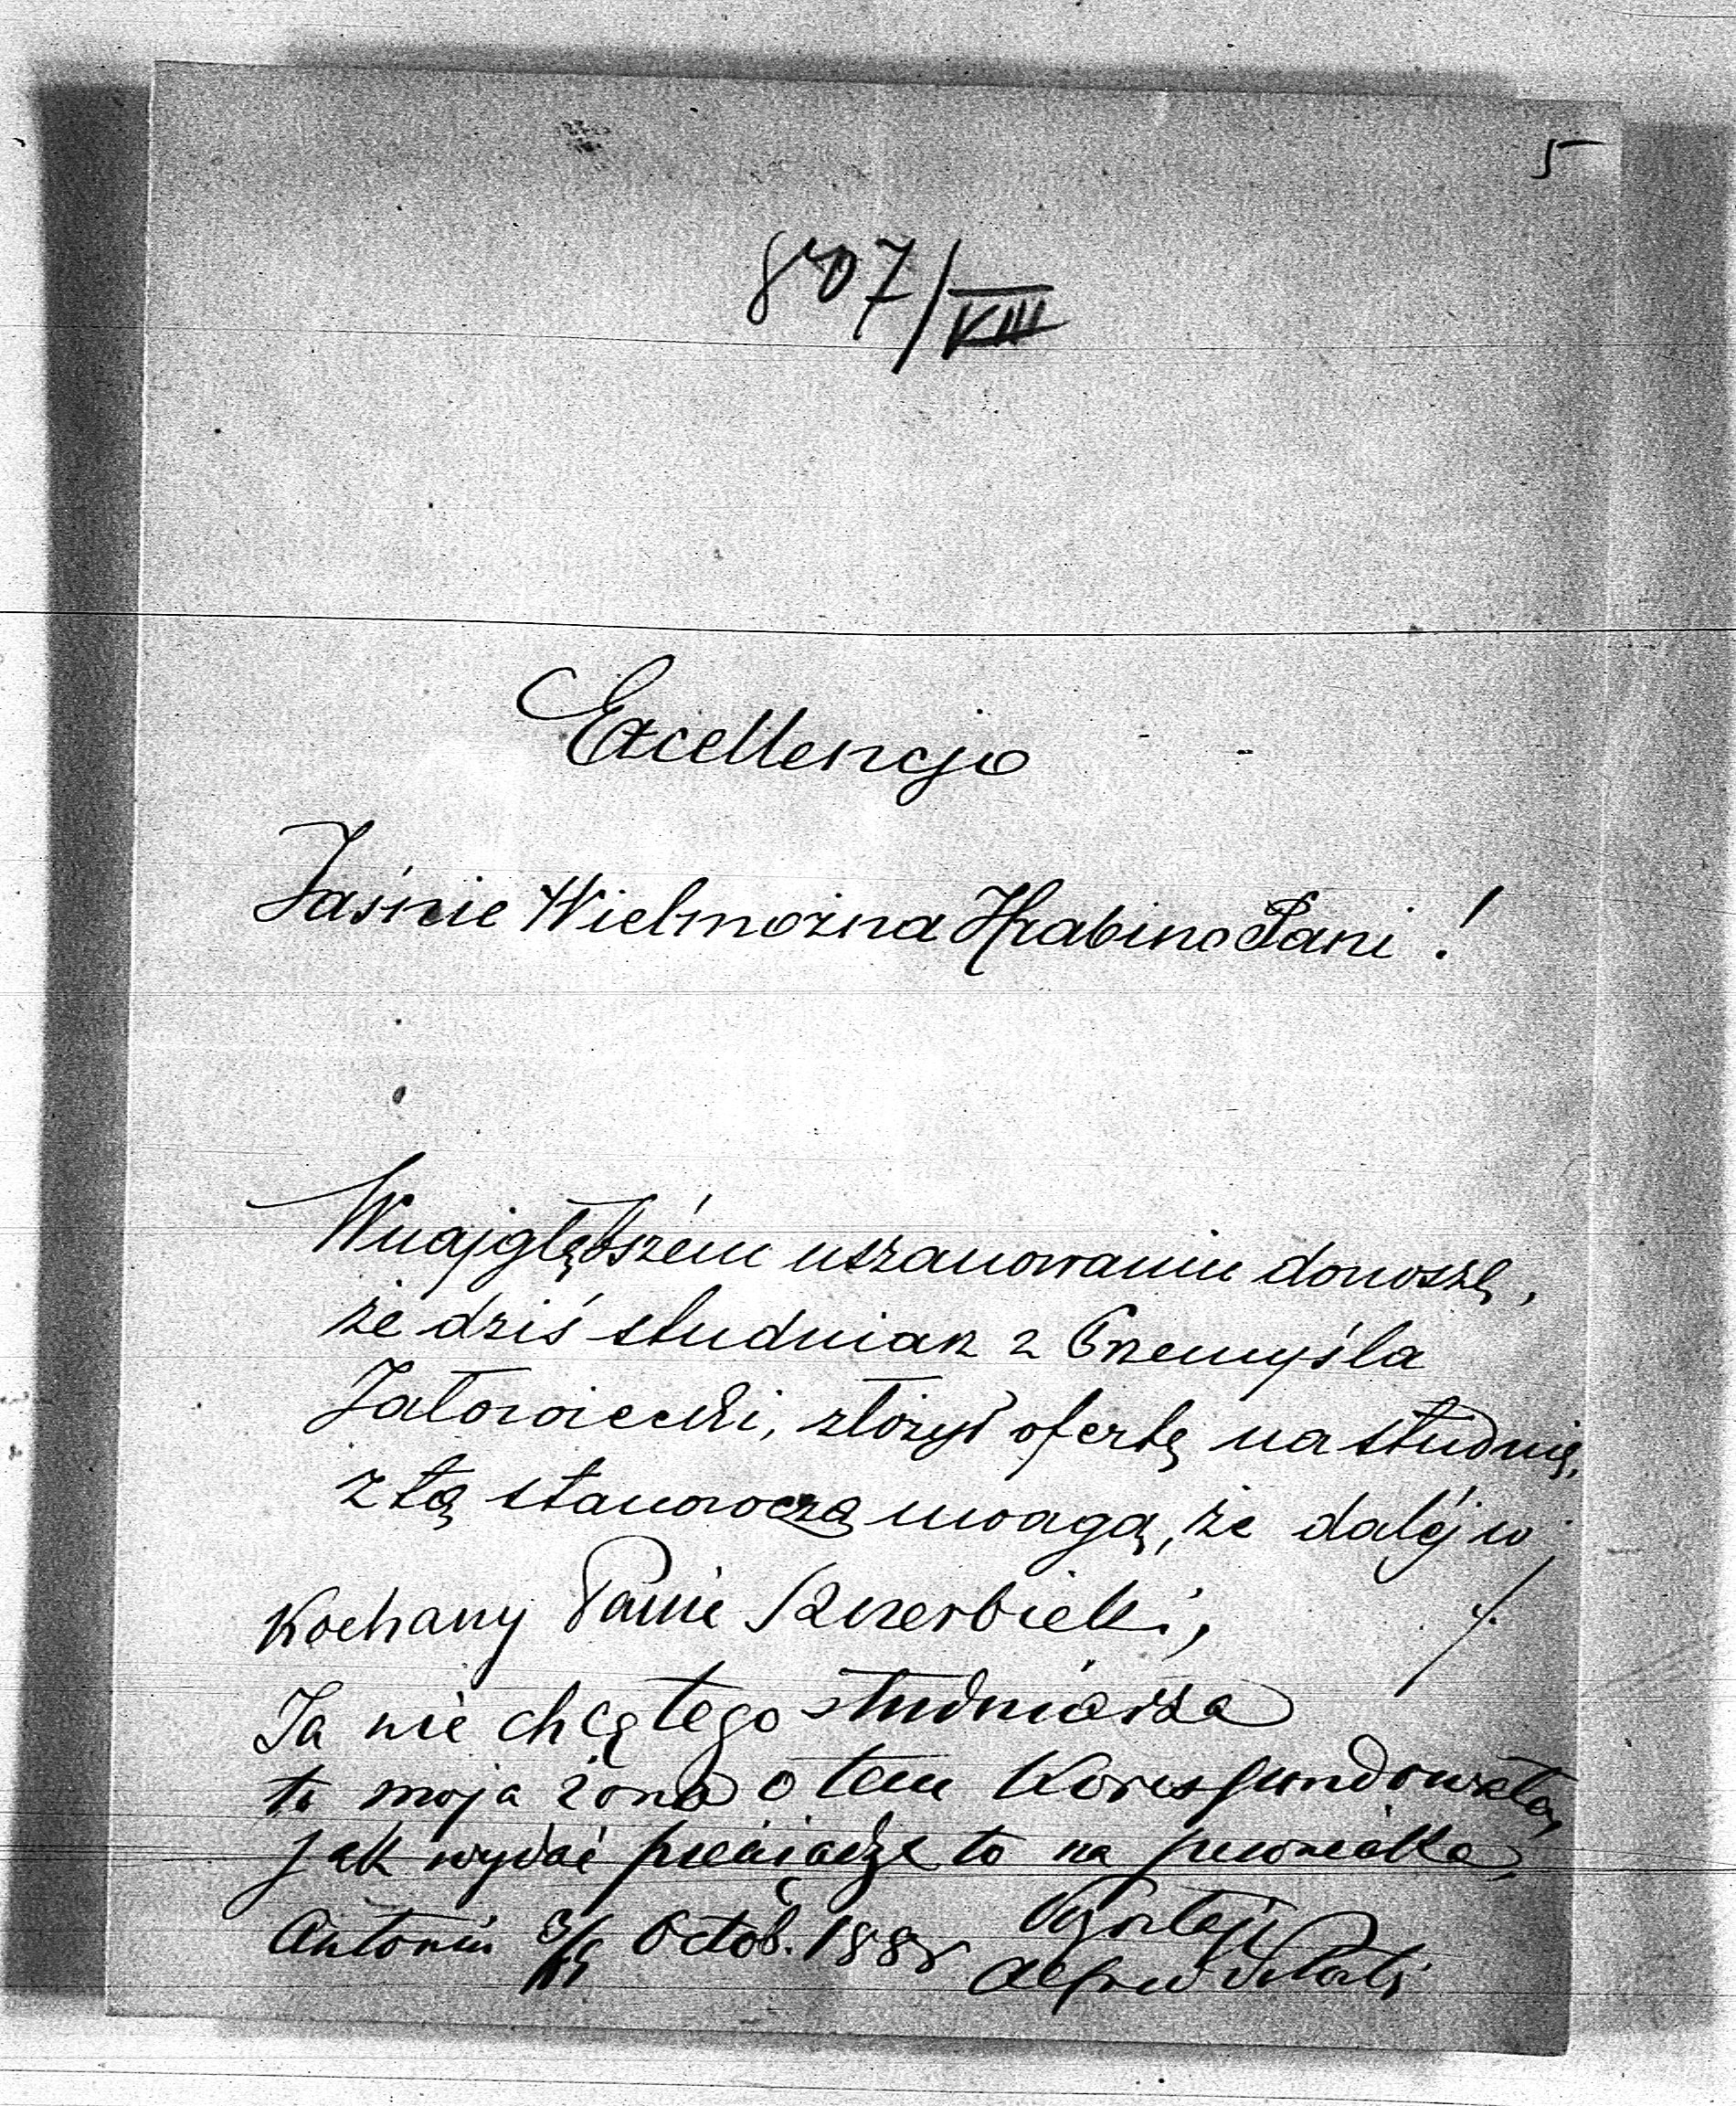 5
807/VIII
Excellencjo
Jaśnie Wielmożna Hrabino Pani!
W najgłębszém uszanowaniu donoszę,
że dziś studniarz z Przemyśla
Jałowiecki, złożył ofertę na studnię,
z tą stanowczą uwagą, że daléj w
Kochany Panie Szczerbicki,
Ja nie chcę tego studniarza
to moja żona o tem korespondowała,
jak wydać pieniądze to na pewniaka,
Antonin 3/15 Octob. 1888
Alfred Potocki